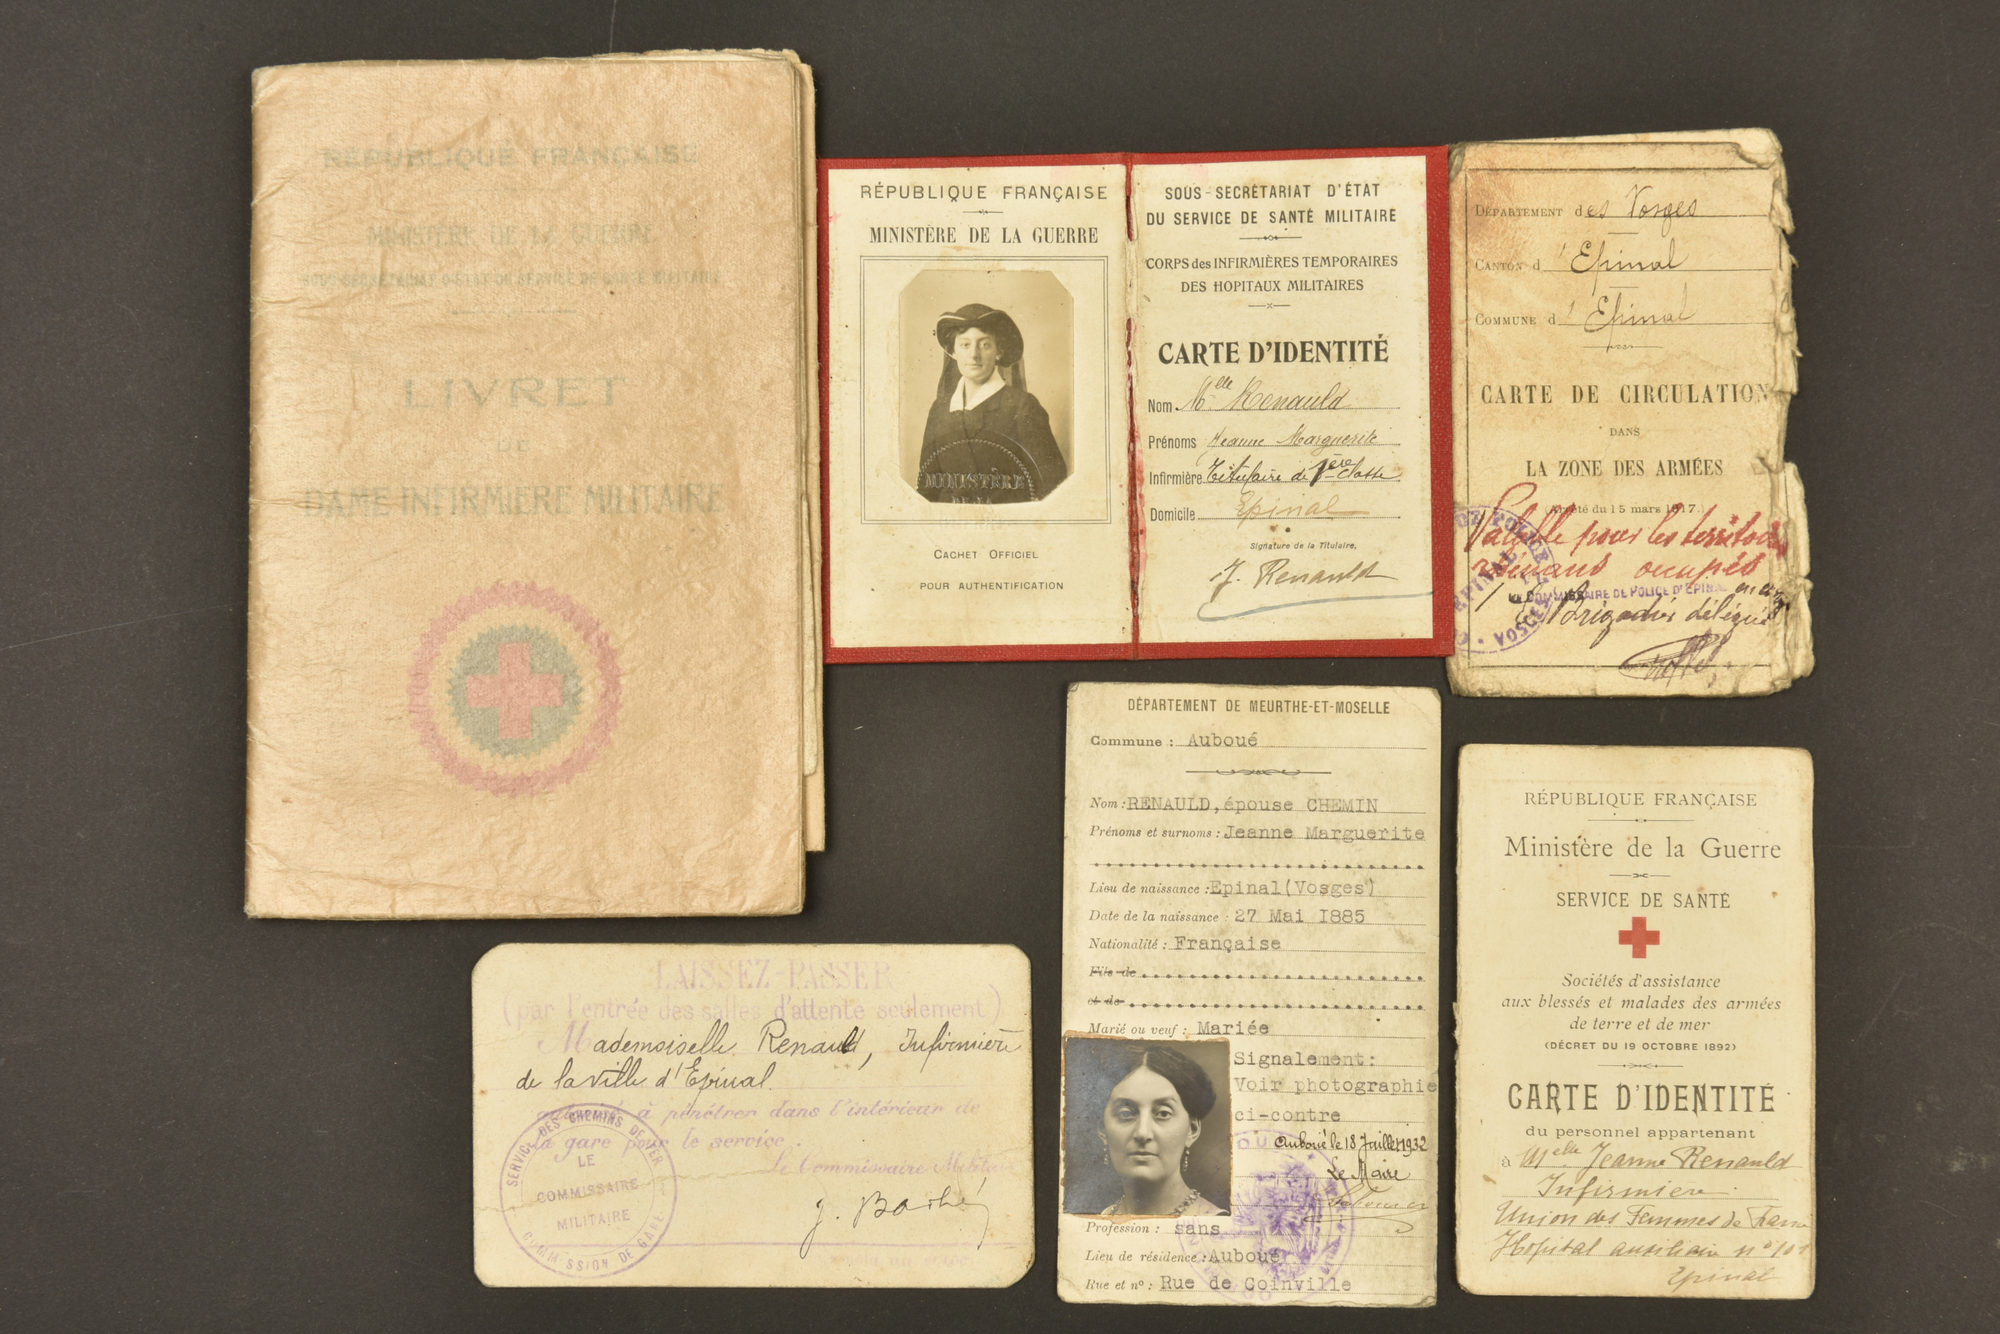 RÉPUBLIQUE FRANÇAISE
MINISTÈRE DE LA GUERRE
SOUS-SECRÉTARIAT D'ÉTAT DU SERVICE DE SANTÉ MILITAIRE
LIVRET
DE
DAME INFIRMIÈRE MILITAIRE
RÉPUBLIQUE FRANÇAISE
MINISTÈRE DE LA GUERRE
MINISTÈRE
DE LA
CACHET OFFICIEL
POUR AUTHENTIFICATION
SOUS-SECRÉTARIAT D'ÉTAT
DU SERVICE DE SANTÉ MILITAIRE
CORPS des INFIRMIÈRES TEMPORAIRES
DES HOPITAUX MILITAIRES
CARTE D'IDENTITÉ
Nom Melle Renauld
Prénoms Jeanne Marguerite
Infirmière Titulaire de 1ère classe
Domicile Epinal
Signature de la Titulaire,
J. Renauld
DÉPARTEMENT des Vosges
CANTON d'Epinal
COMMUNE d'Epinal
CARTE DE CIRCULATION
DANS
LA ZONE DES ARMÉES
(Arrêté du 15 mars 1917.)
Valable pour les territoi
rhénans occupés
LE COMMISSAIRE DE POLICE D'EPINAL
Brigadier délégué
EPINAL
VOSGES
DÉPARTEMENT DE MEURTHE-ET-MOSELLE
Commune : Auboué
Nom : RENAULD, épouse CHEMIN
Prénoms et surnoms : Jeanne Marguerite
Lieu de naissance : Epinal (Vosges)
Date de la naissance : 27 Mai I885
Nationalité : Française
Fils de
et de
Marié ou veuf : Mariée
Signalement:
Voir photographie
ci-contre
Auboué le 18 Juillet 1932
Le Maire
Profession : sans
Lieu de résidence : Auboué
Rue et n° : Rue de Coinville
RÉPUBLIQUE FRANÇAISE
Ministère de la Guerre
SERVICE DE SANTÉ
Sociétés d'assistance
aux blessés et malades des armées
de terre et de mer
(DÉCRET DU 19 OCTOBRE 1892)
CARTE D'IDENTITÉ
du personnel appartenant
à Melle Jeanne Renauld
Infirmière
Union des Femmes de France
Hôpital auxiliaire n° 101
Epinal
LAISSEZ-PASSER
(par l'entrée des salles d'attente seulement)
Mademoiselle Renauld, Infirmière
de la ville d'Epinal
autorisé à pénétrer dans l'intérieur de
la gare pour le service.
Le Commissaire Militaire
SERVICE DES CHEMINS DE FER
LE
COMMISSAIRE
MILITAIRE
COMMISSION DE GARE